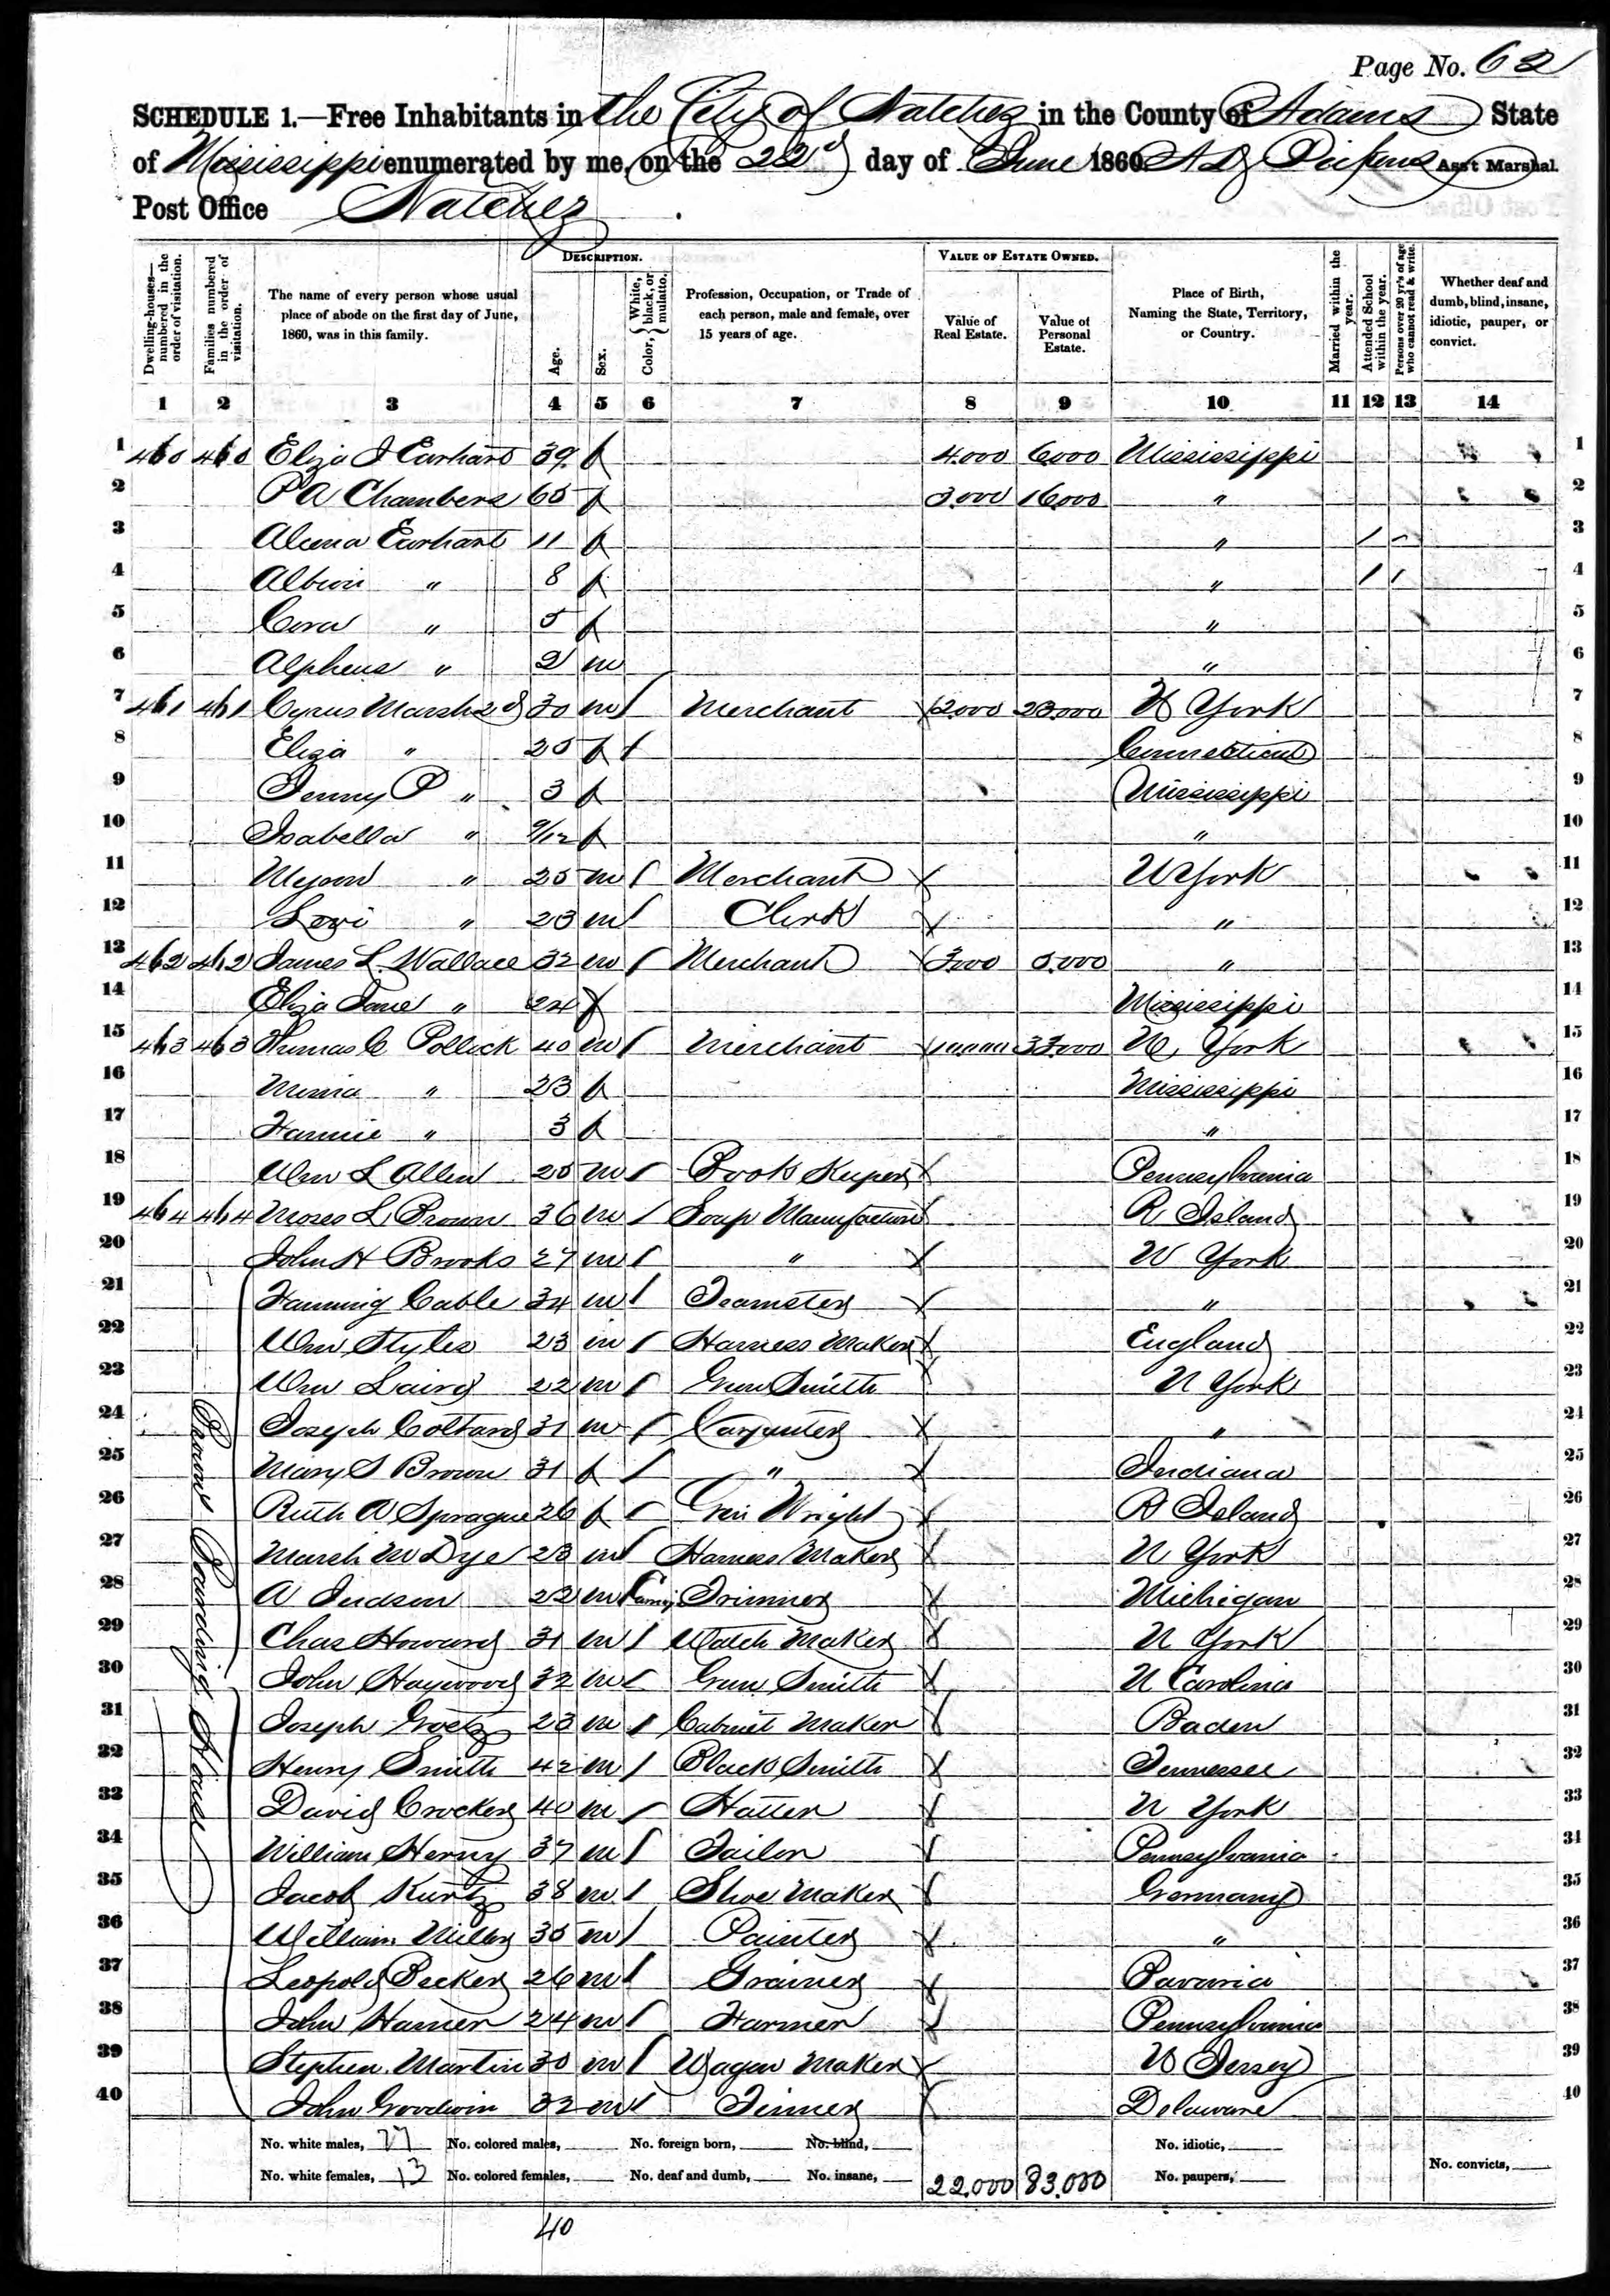 Page No. 62
SCHEDULE 1.—Free Inhabitants in the City of Natchez in the County of Adams State
of Mississippi enumerated by me, on the 22d day of June 1860. Ass't Marshal.
Post Office Natchez
Dwelling-houses—numbered in the order of visitation. Families numbered in the order of visitation. The name of every person whose usual place of abode on the first day of June, 1860, was in this family. DESCRIPTION. Age. Sex. Color, { White, black, or mulatto. Profession, Occupation, or Trade of each person, male and female, over 15 years of age. VALUE OF ESTATE OWNED. Value of Real Estate. Value of Personal Estate. Place of Birth, Naming the State, Territory, or Country. Married within the year. Attended School within the year. Persons over 20 yr's of age who cannot read & write. Whether deaf and dumb, blind, insane, idiotic, pauper, or convict.
1 2 3 4 5 6 7 8 9 10 11 12 13 14
1 460 460 Eliza J Earhart 39 f 4.000 6000 Mississippi 1
2 P A Chambers 65 f 3.000 16.000 " 2
3 Earhart 11 f " / 3
4 8 f " / / 4
5 Cora " 5 f " 5
6 Alpheus " 2 m " 6
7 461 461 Cyrus Marsh 2d 30 m / Merchant 2000 23.000 N York 7
8 Eliza " 25 f / Connecticut 8
9 Jenny P " 3 f Mississippi 9
10 Isabella " 9/12 f " 10
11 " 25 m / Merchant N York 11
12 Levi " 23 m / Clerk " 12
13 462 462 James L. Wallace 32 m / Merchant 3000 5.000 " 13
14 Eliza Jane " 24 f Mississippi 14
15 463 463 Thomas C Pollock 40 m / Merchant 10.000 33.000 N, York 15
16 " 23 f Mississippi 16
17 Fannie " 3 f " 17
18 Wm L Allen 25 m / Book Keeper Pennsylvania 18
19 464 464 Moses L, Brown 36 m / Soap Manufacturer R, Island 19
20 John H Brooks 27 m / " N York 20
21 Fanning Cable 34 m / Teamster " 21
22 Wm Styles 23 m / Harness Maker England 22
23 Wm Laird 22 m / Gun Smith N York 23
24 Joseph Coltard 31 m / Carpenter " 24
25 Mary S Brown 31 f / " Indiana 25
26 Ruth A Sprague 26 f / Wright R Island 26
27 Marsh M Dye 23 m / Harness Maker N York 27
28 A Judson 22 m Trimmer Michigan 28
29 Chas Howard 31 m / Watch Maker N York 29
30 John Haywood 32 m / Gun Smith N Carolina 30
31 Joseph Goetz 23 m / Cabinet Maker Baden 31
32 Henry Smith 42 m / Black Smith Tennessee 32
33 David Crocker 40 m / Hatter N York 33
34 William Henry 37 m / Tailor Pennsylvania 34
35 Jacob Kurtz 38 m / Shoe Maker Germany 35
36 William Miller 35 m / Painter " 36
37 Leopold Becker 26 m / Grainer Bavaria 37
38 John Hamer 24 m / Farmer Pennsylvania 38
39 Stephen Martin 30 m / Wagon Maker N Jersey 39
40 John Goodwin 32 m / Tinner Delaware 40
Browns Boarding House
No. white males, 27 No. colored males, No. foreign born, No. blind, No. idiotic,
No. white females, 13 No. colored females, No. deaf and dumb, No. insane, 22.000 83.000 No. paupers, No. convicts,
40